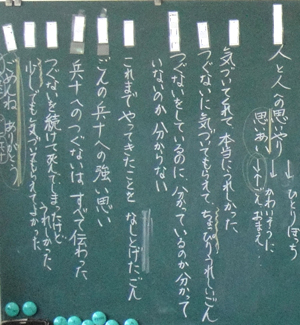 人と人の思いやり → ひとりぼっち
思いあい → かわいそうに
気づいてくれて本当にうれしかった
つぐないに気づいてもらえて、ちょっぴりうれしいごん
つぐないをしているのに、分かっているのか分かって
いないのか分からない
これまでやってきたことをなしとげたごん
ごんの兵十への強い思い
兵十へのつぐないは、すべて伝わった
つぐないを続けて死んでしまったけど
少しでも気づいてもらえてよかった
ごめんね ありがとう